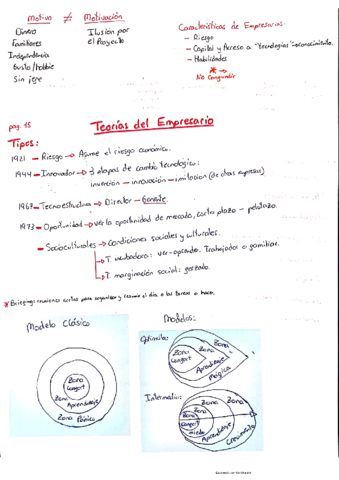 Motivo ≠ Motivación
Dinero
Familiares
Independencia
Gusto/Hobbie
Sin jefe
Ilusión por
el Proyecto
Características de Empresarios:
- Riesgo
- Capital y Acceso a "tecnologías"=conocimiento.
- Habilidades
* →
No Conformidad
pag. 15
Teorías del Empresario
Tipos:
1921 - Riesgo → Asume el riesgo económico.
1944 - Innovador → 3 etapas de cambio tecnológico:
invención - innovación - imitación (de otras empresas).
1967 - Tecnoestructura → Director - Gerente.
1973 - Oportunidad → ver la oportunidad de mercado, corto plazo -
- Socioculturales → condiciones sociales y culturales.
→ T. incubadora: ver-aprendo. Trabajador a
→ T. marginación social: forzado.
* Briefing: reuniones cortas para organizar y resumir el día o las tareas a hacer.
Modelo Clásico
Zona
Confort
Zona
Aprendizaje
Zona Pánico
Modelos:
Optimista:
Zona
Confort
Zona
Aprendizaje
Zona
Mágica
Intermedio:
Zona
Confort
Zona
miedo
Zona
Aprendizaje
Zona
Crecimiento